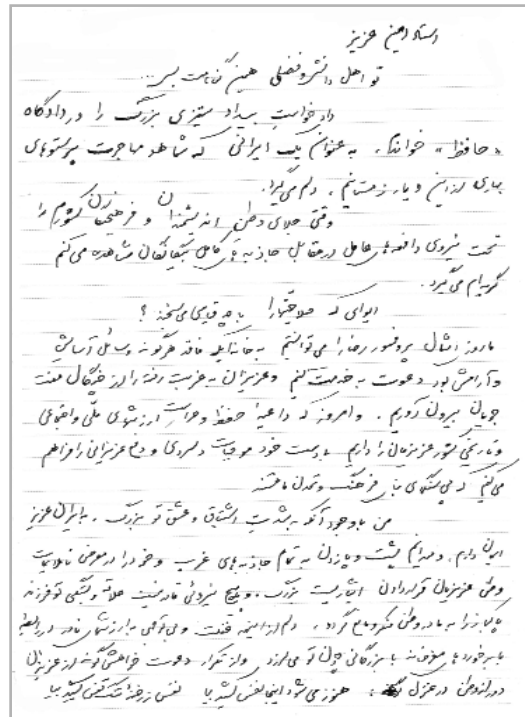 استاد امین عزیز
تو اهل دانش و فضلی همین گناهت بس ...
دادخواست بیداد ستیزی بزرگ را در دادگاه
«حافظ» خواندم. به عنوان یک ایرانی که شاهد مهاجرت پرستوهای
بهاری از این دیار زمستانیم، دلم می‌گیرد.
وقتی جلای وطن اندیشمندان و فرهنگمداران کشورم را
تحت نیروی دافعه‌ی عامل در مقابل جاذبه‌ی کامل بیگانگان مشاهده می‌کنم
گریه‌ام می‌گیرد.
ای وای که صلاحیتها را با چه قیاسی می‌سنجند؟
ما روز امثال پروفسور رضا را می‌توانستیم به خانه‌ای که فاقد هرگونه وسائل آسایش
و آرامش بود دعوت به خدمت کنیم و عزیزان به غربت رفته را از چنگال منفعت
جویان بیرون آوریم. و امروز که داعیهٔ حفظ و حراست ارزشهای ملی و اجتماعی
و تاریخی کشور عزیزمان را داریم با دست خود موجبات دلسردی و دفع عزیزانی را فراهم
می‌کنیم که فرهنگ و تمدن ما هستند
من با وجود آنکه به شدت اشتیاق و عشق تو بزرگ، به ایران عزیز
ایمان دارم، و میدانم پشت پا زدن به تمام جاذبه‌های غرب و خود را در معرض ناملایمات
وطن عزیزمان قرار دادن ایثاریست بزرگ، و هیچ نیروئی قادر نیست علاقه و بستگی تو فرزند
پاکباز را به مادر وطن گردد، دلم از اینهمه غفلت و بی‌توجهی به ارزشهای نادر
با برخوردهای با بزرگانی چون تو می‌لرزد و از تکرار دعوت گونه از عزیزان
دور از وطن در هنوز می‌شود اینجا نفس کشید بیا نفس کشید بیا